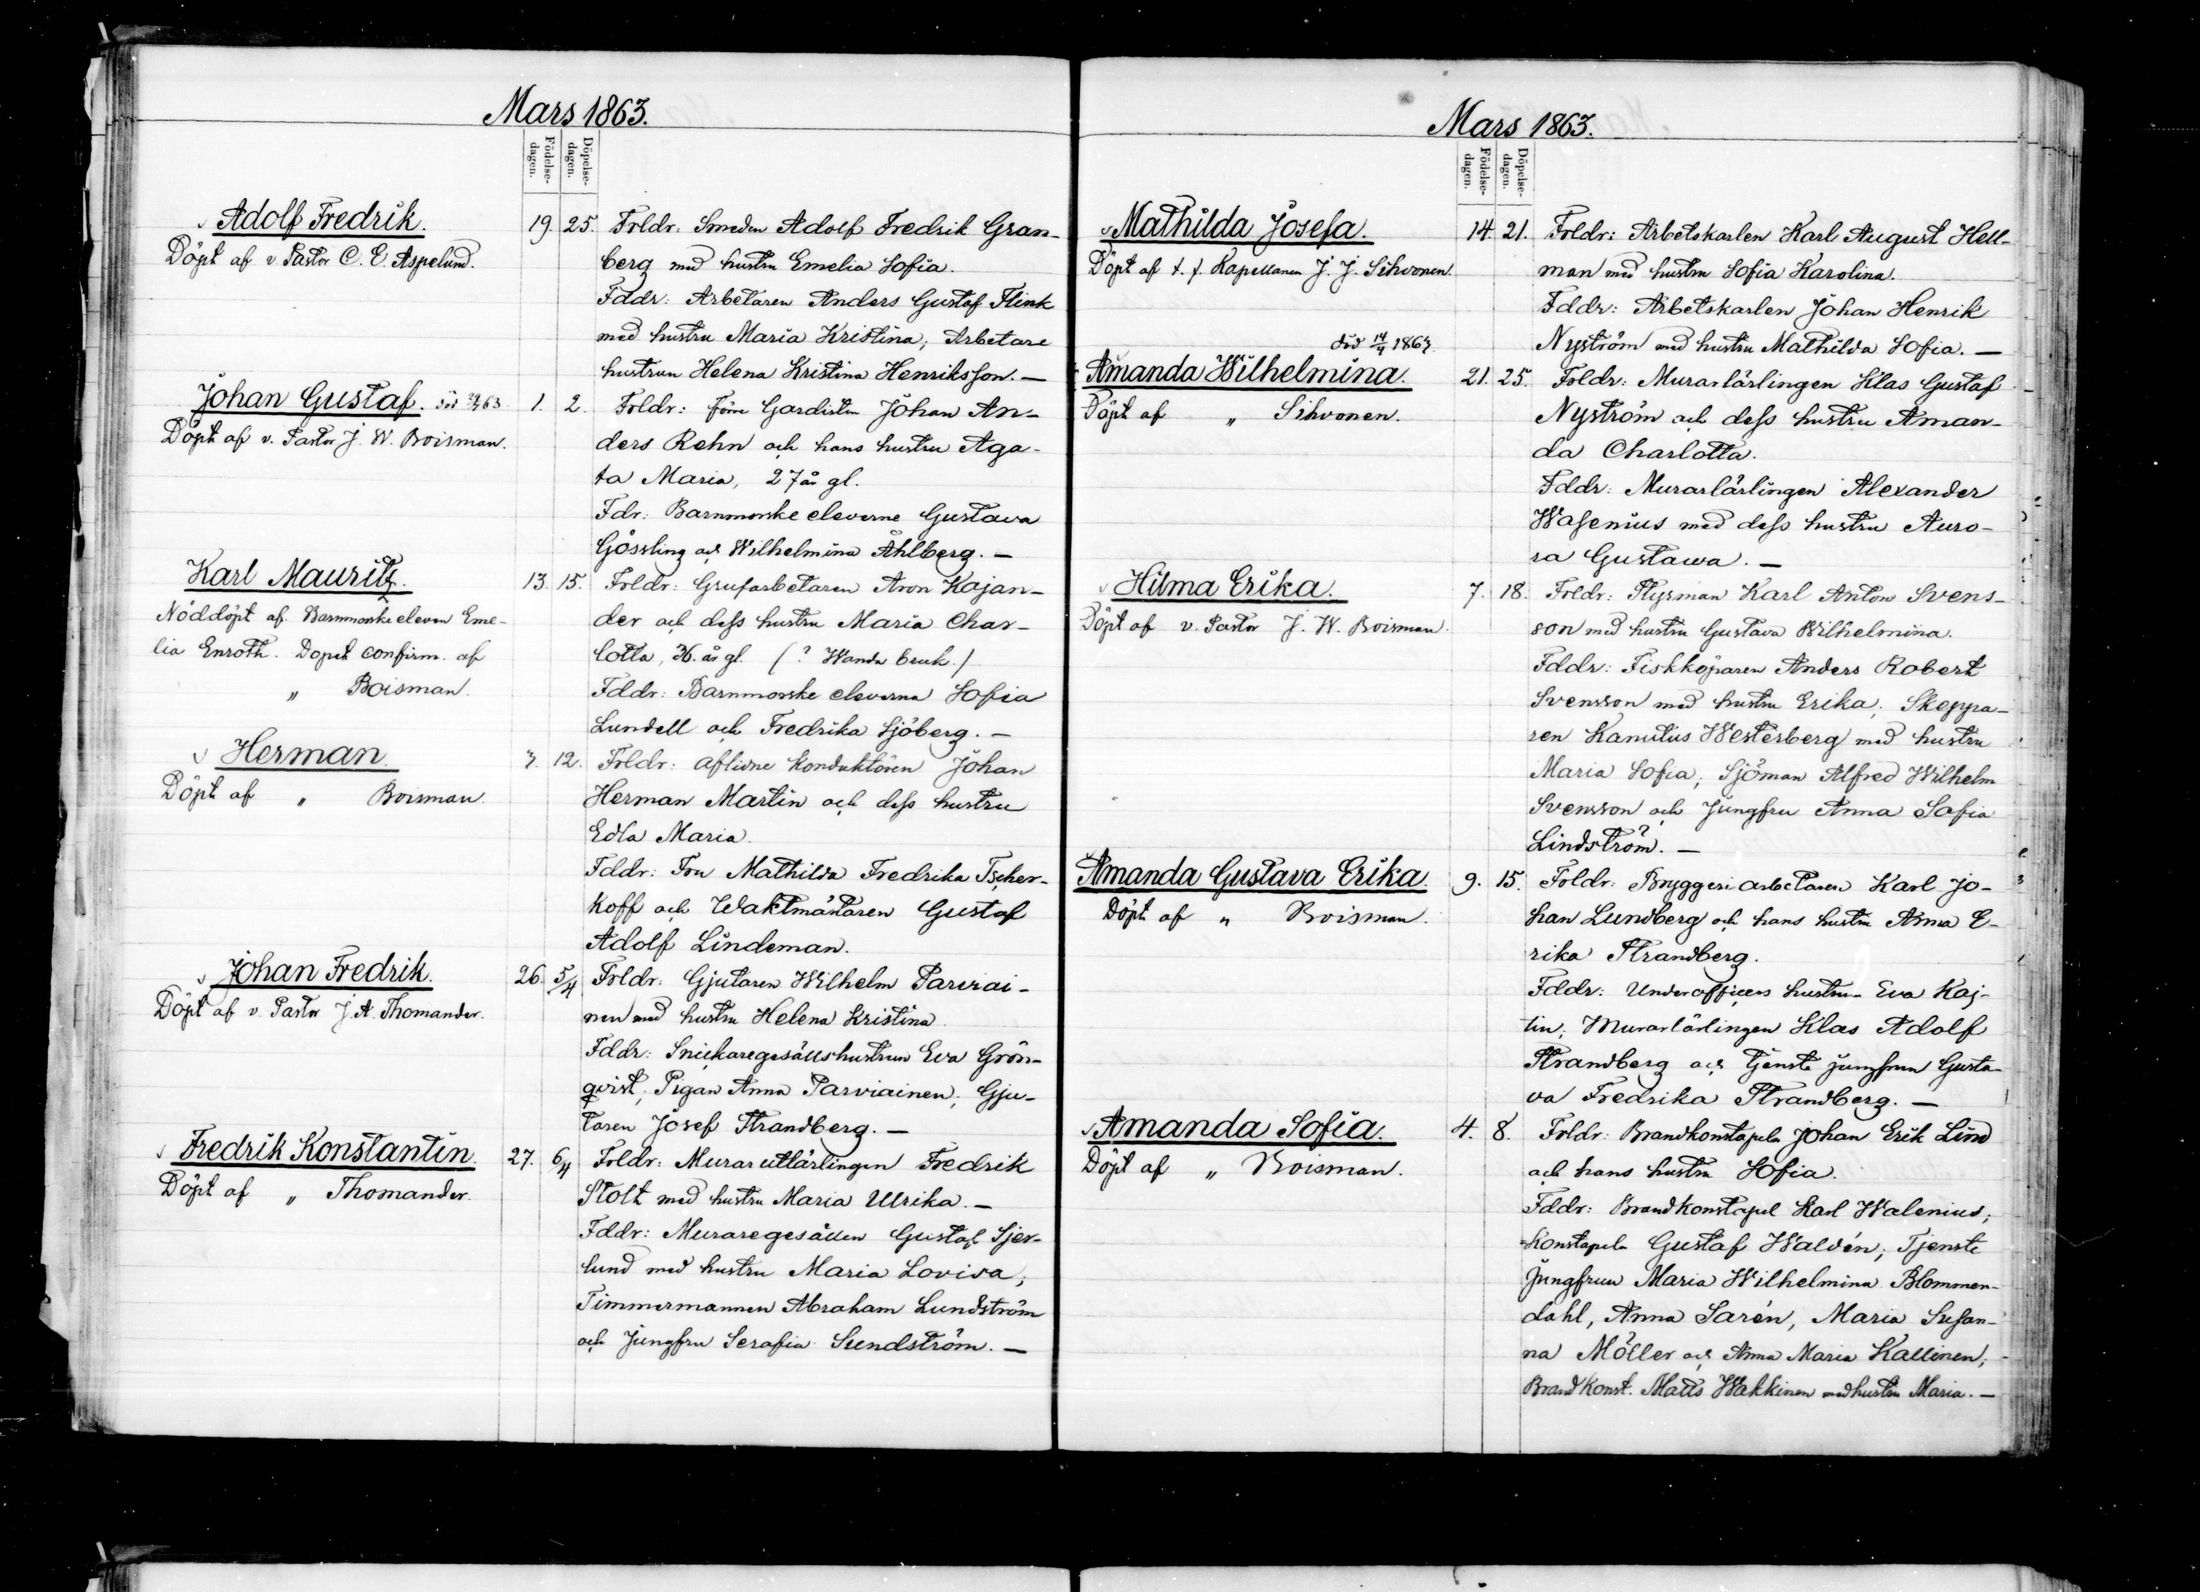 Mars 1863.
Födelse-dagen.
Döpelse-dagen.
Adolf Fredrik.
Döpt af v Pastor C. E. Aspelund.
19. 25.
Frldr: Smeden Adolf Fredrik Gran-
berg med hustru Emelia Sofia.
Fddr: Arbetaren Anders Gustaf Flink
med hustru Maria Kristina; Arbetare
hustrun Helena Kristina Henriksson. —
Johan Gustaf. död 63
Döpt af v. Pastor J. W. Boisman.
1. 2.
Frldr: förre Gardisten Johan An-
ders Rehn och hans hustru Aga-
ta Maria, 27 år gl.
Fdr: Barnmorske eleverne Gustava
Gössling och Wilhelmina Åhlberg. —
Karl Mauritz.
Nöddöpt af Barnmorske eleven Eme-
lia Enroth. Dopet confirm. af
„ Boisman.
13. 15.
Frldr: Grufarbetaren Aron Kajan-
der och dess hustru Maria Char-
lotta, 36. år gl. (? Wanda bruk.)
Fddr: Barnmorske eleverna Sofia
Lundell och Fredrika Sjöberg. —
Herman.
Döpt af „ Boisman.
7. 12.
Frldr: aflidne Konduktören Johan
Herman Martin och dess hustru
Edla Maria.
Fddr: Fru Mathilda Fredrika Tscher-
koff och Waktmästaren Gustaf
Adolf Lindeman.
Johan Fredrik.
Döpt af v. Pastor J. A. Thomander.
26. 5/4
Frldr: Gjutaren Wilhelm Parviai-
nen med hustru Helena Kristina.
Fddr: Snickaregesällshustrun Eva Grön-
qvist; Pigan Anna Parviainen; Gju-
taren Josef Strandberg. —
Fredrik Konstantin.
Döpt af „ Thomander.
27. 6/4
Frldr: Murarutlärlingen Fredrik
Stolt med hustru Maria Ulrika. —
Fddr: Muraregesällen Gustaf Sjer-
lund med hustru Maria Lovisa;
Timmermannen Abraham Lundström
och Jungfru Serafia Sundström. —
Mars 1863.
Födelse-dagen.
Döpelse-dagen.
Mathilda Josefa.
Döpt af t. f. Kapellanen J. J. Sihvonen.
14. 21.
Frldr: Arbetskarlen Karl August Hell-
man med hustru Sofia Karolina.
Fddr: Arbetskarlen Johan Henrik
Nyström med hustru Mathilda Sofia. —
död 14/4 1867.
Amanda Wilhelmina.
Döpt af „ Sihvonen.
21. 25.
Frldr: Murarlärlingen Klas Gustaf
Nyström och dess hustru Aman-
da Charlotta.
Fddr: Murarlärlingen Alexander
Wasenius med dess hustru Auro-
ra Gustawa. —
Hilma Erika.
Döpt af v. Pastor J. W. Boisman.
7. 18.
Frldr: Styrman Karl Anton Svens-
son med hustru Gustava Wilhelmina.
Fddr: Fiskköparen Anders Robert
Svensson med hustru Erika; Skeppa-
ren Kanutus Westerberg med hustru
Maria Sofia; Sjöman Alfred Wilhelm
Svensson och Jungfru Anna Sofia
Lindström. —
Amanda Gustava Erika.
Döpt af „ Boisman.
9. 15.
Frldr: Bryggeriarbetaren Karl Jo-
han Lundberg och hans hustru Anna E-
rika Strandberg.
Fddr: Underofficers hustru Eva Kaj-
tin; Murarlärlingen Klas Adolf
Strandberg och Tjenste jungfrun Gusta-
va Fredrika Strandberg. —
Amanda Sofia.
Döpt af „ Boisman.
4. 8.
Frldr: Brandkonstapeln Johan Erik Lind
och hans hustru Sofia.
Fddr: Brandkonstapel Karl Walenius;
Konstapeln Gustaf Waldén; Tjenste
Jungfrun Maria Wilhelmina Blommen-
dahl, Anna Sarén, Maria Susan-
na Möller och Anna Maria Kallinen;
Brandkonst. Matts Wakkinen med hustru Maria. —